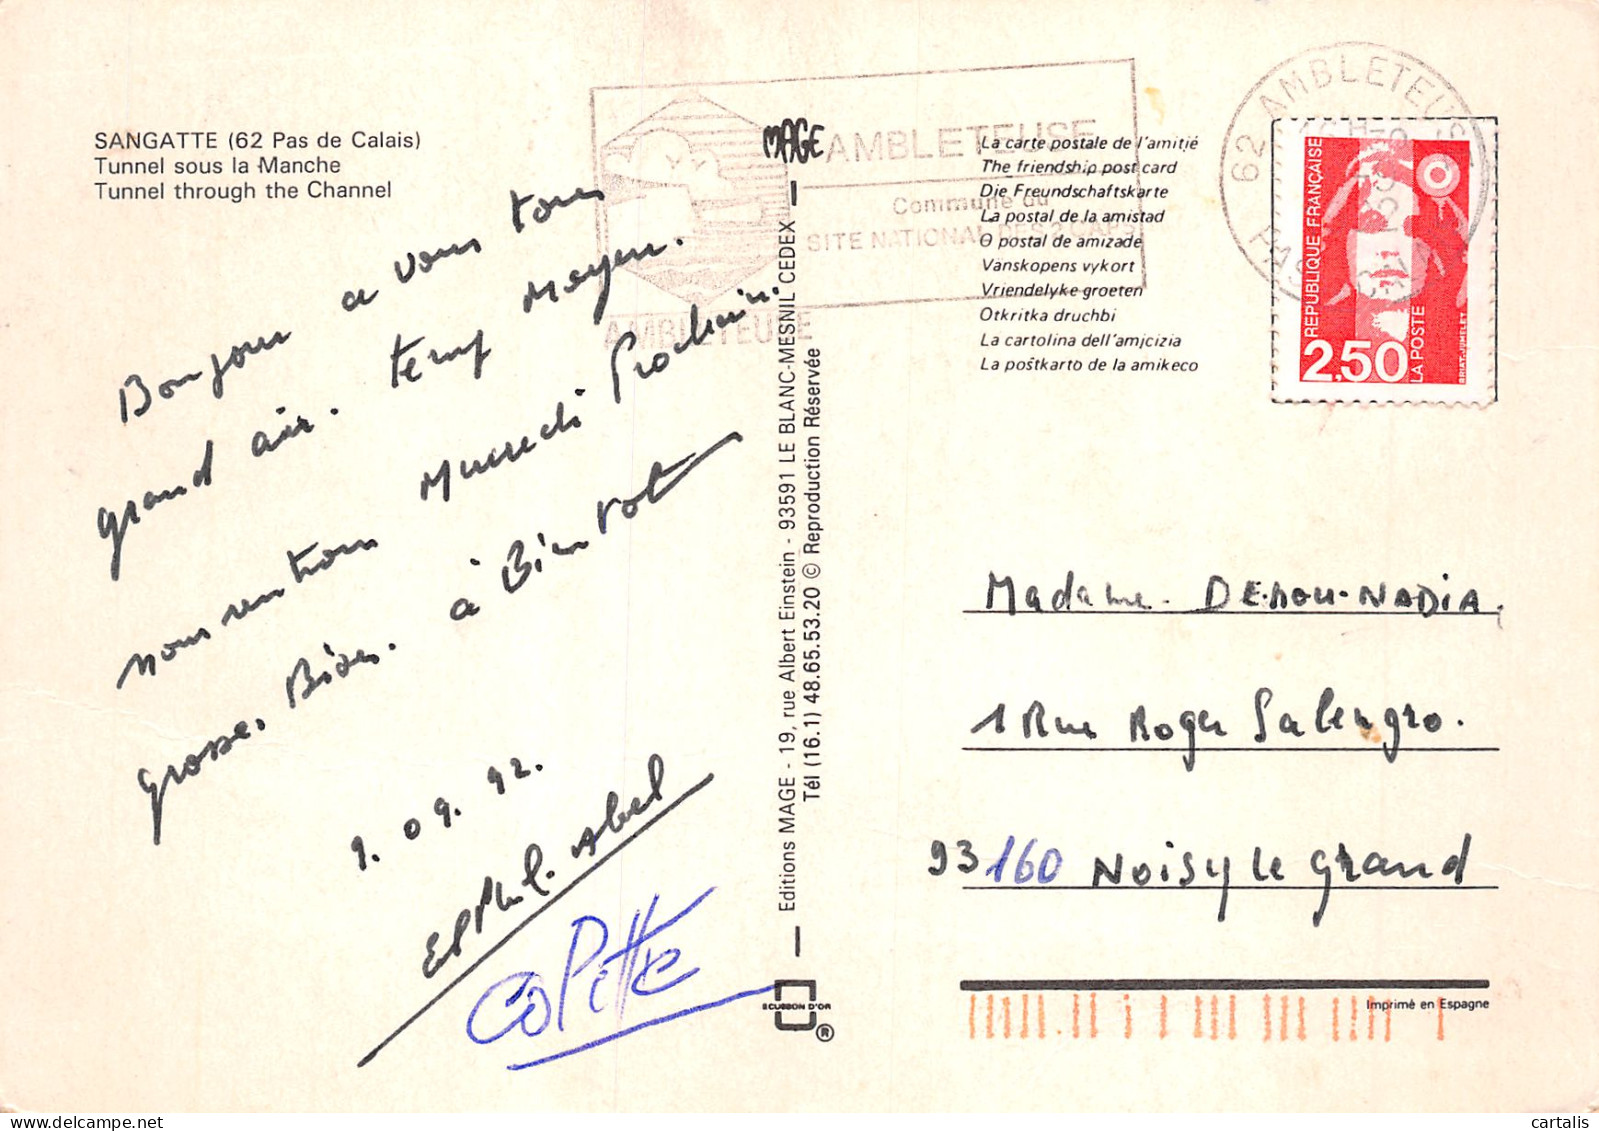 SANGATTE (62 Pas de Calais)
Tunnel sous la Manche
Tunnel through the Channel
Bonjour a vous tous
grand air. temps Moyen.
nous rentrons Mercredi Prochain.
grosse. Bises. à Bientot
9. 09. 92.
Abel
COlette
MAGE
Editions MAGE - 19, rue Albert Einstein - 93591 LE BLANC-MESNIL CEDEX
Tél (16.1) 48.65.53.20 © Reproduction Réservée
ECUSSON D'OR
®
AMBLETEUSE
AMBLETEUSE
Commune du
SITE NATIONAL DES 2 CAPS
La carte postale de l'amitié
The friendship post card
Die Freundschaftskarte
La postal de la amistad
O postal de amizade
Vänskopens vykort
Vriendelyke groeten
Otkritka druchbi
La cartolina dell'amicizia
La poŝtkarto de la amikeco
62 AMBLETEUSE
REPUBLIQUE FRANÇAISE
2,50
LA POSTE
BRIAT-JUMELET
Madame. DEHOU-NADIA.
1 Rue Roger Salengro.
93160 NOiSy Le Grand
Imprimé en Espagne
cartalis
www.delcampe.net